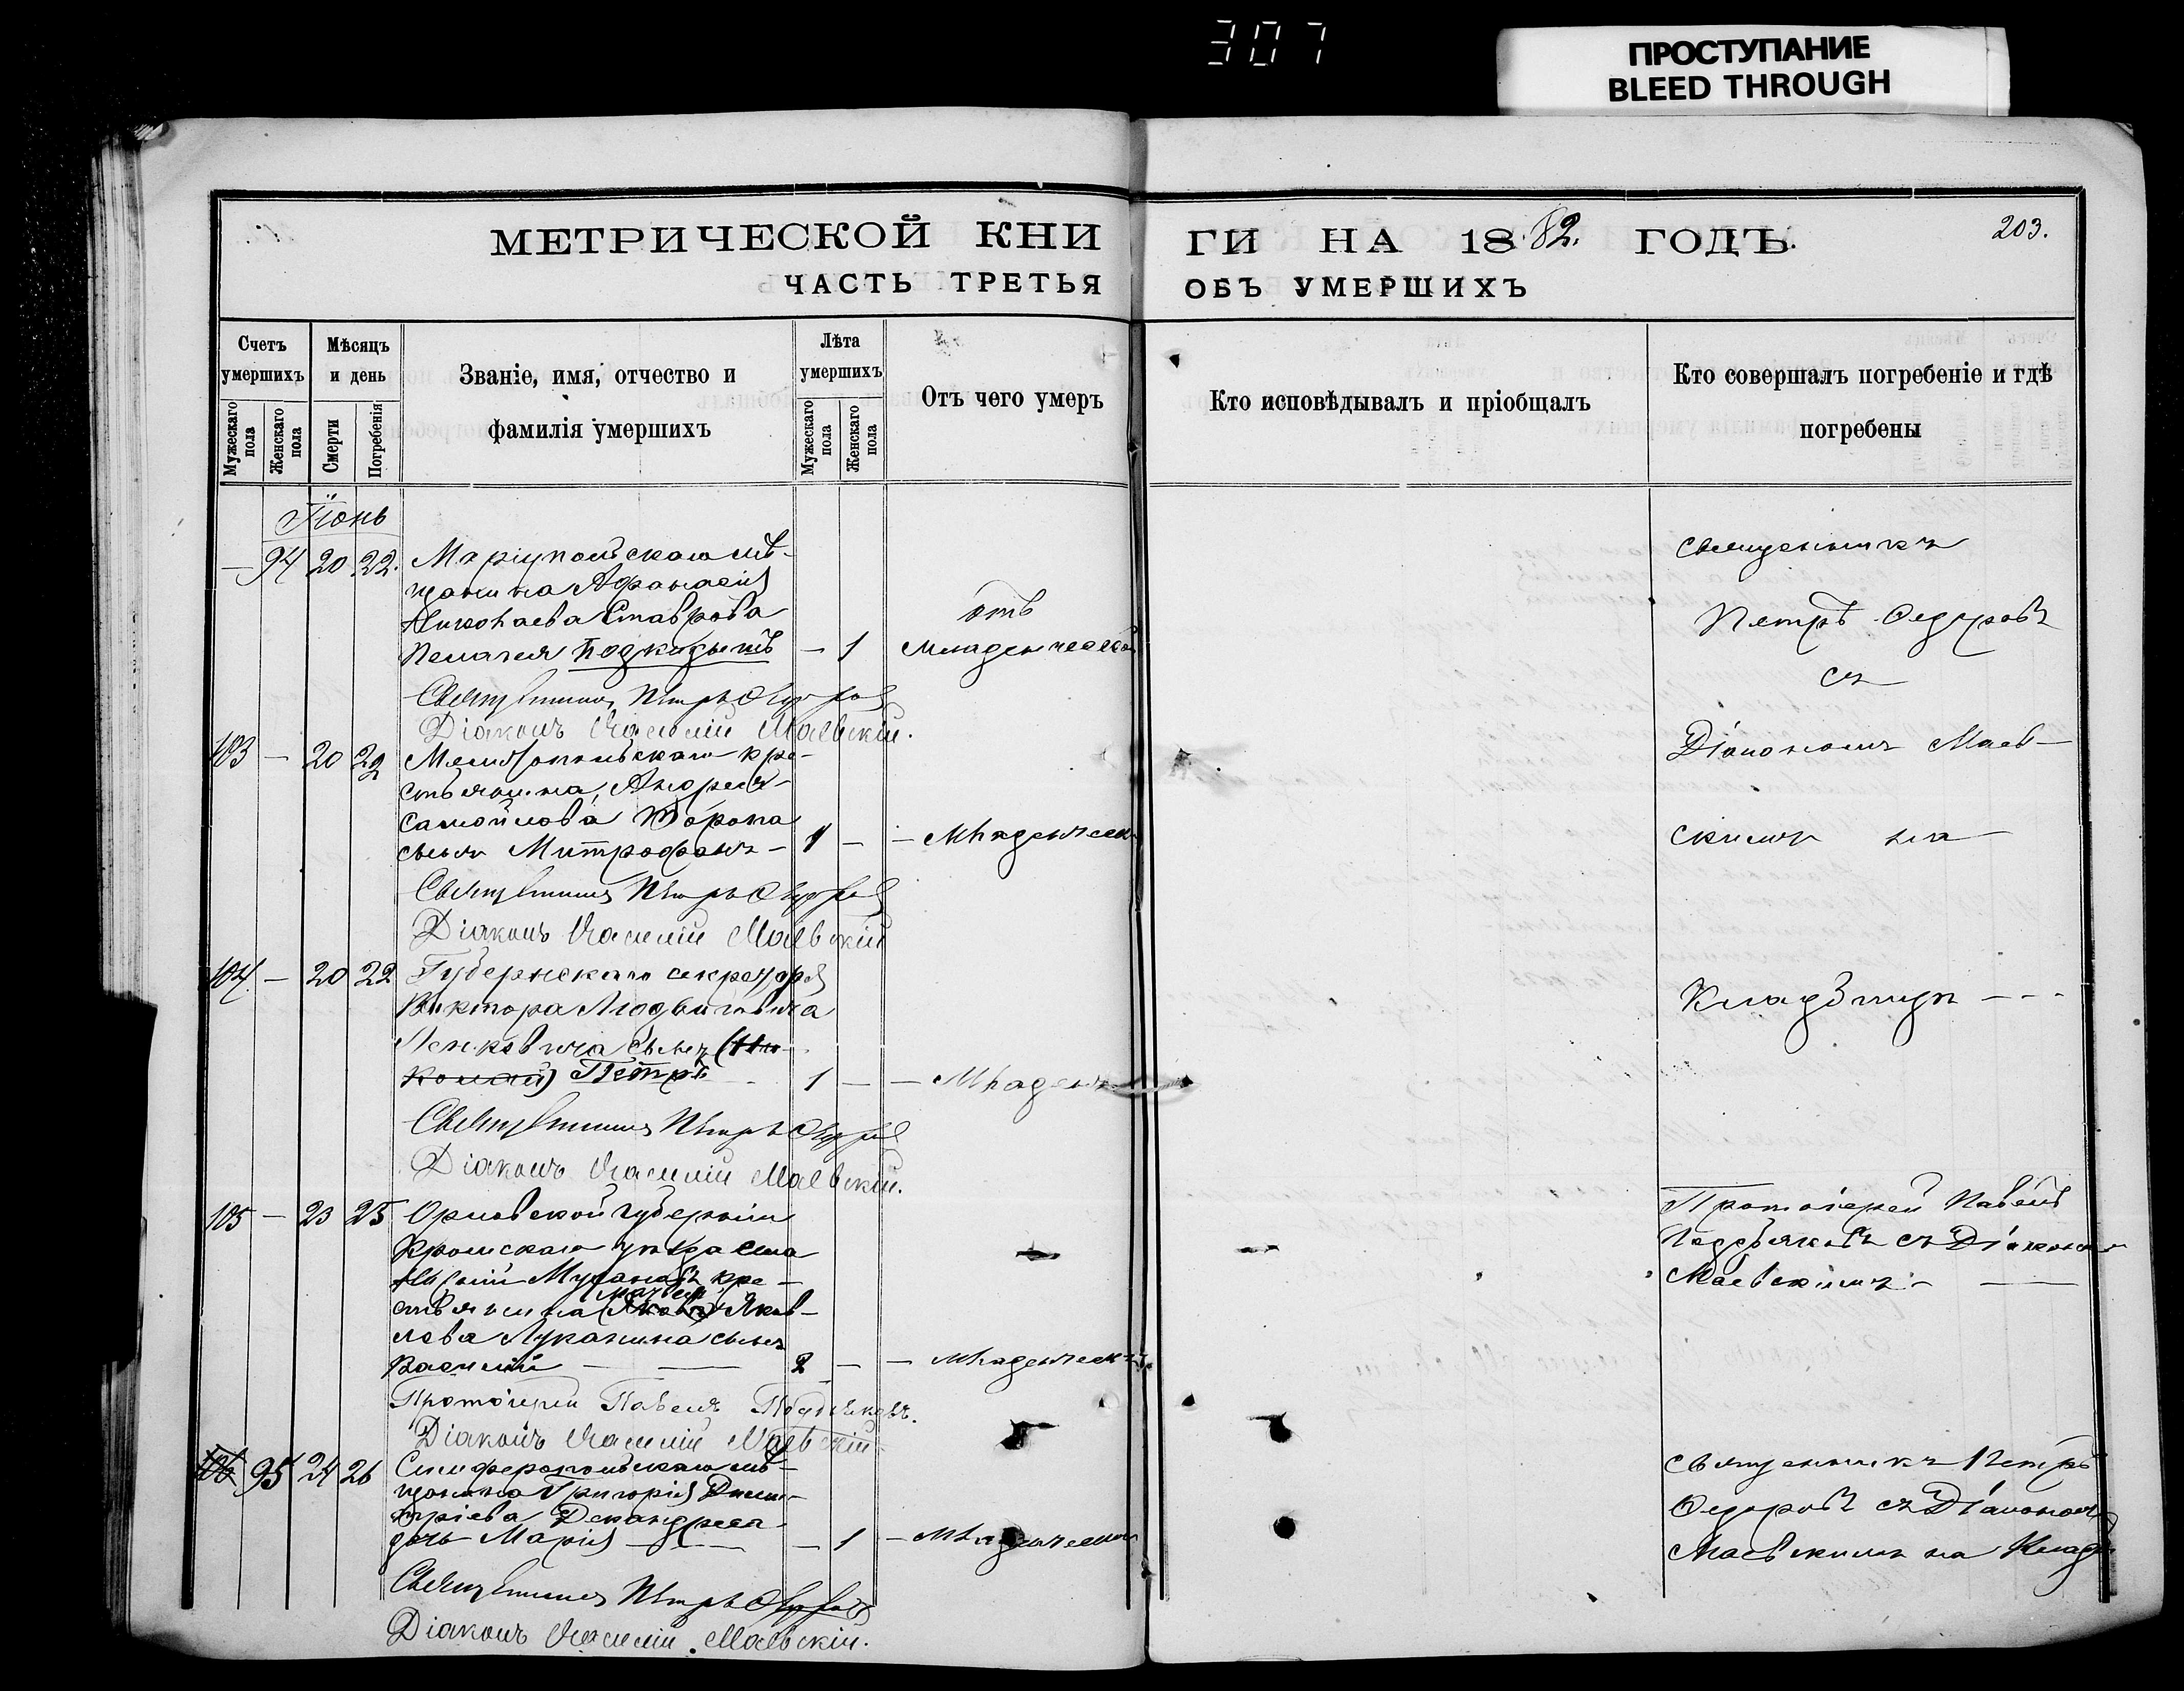 307
ПРОСТУПАНИЕ
BLEED THROUGH
МЕТРИЧЕСКОЙ КНИ
ГИ НА 1882. ГОДЪ.
203.
ЧАСТЬ ТРЕТЬЯ
ОБЪ УМЕРШИХЪ
Счетъ умершихъ
Мужескаго пола
Женскаго пола
Мѣсяцъ и день
Смерти
Погребенія
Званіе, имя, отчество и
фамилія умершихъ
Лѣта умершихъ
Мужескаго пола
Женскаго пола
Отъ чего умеръ
Кто исповѣдывалъ и пріобщалъ
Кто совершалъ погребеніе и гдѣ
погребены
Іюнь
— 94 20 22. Маріупольскаго мѣ-
щанина Афанасія
Николаева Ставрова
Пелагея Подкидышъ — 1
отъ
младенческой
Священникъ
Петръ Федоровъ
съ
Діакономъ Маев-
скимъ на
Кладбищѣ - - -
Священникъ Петръ Федоровъ
Діаконъ Василій Маевскій.
103 — 20 22 Мелитопольскаго кре-
стьянина, Андрея
Самойлова
сынъ Митрофанъ - 1 — — Младенческ
Священникъ Петръ Федоровъ
Діаконъ Василій Маевскій
104. — 20 22 Губернскаго секретаря
Виктора Людвиговича
сынъ
Петръ 1 — — Младенч
Священникъ Петръ Федоровъ
Діаконъ Василій Маевскій.
105 — 23 25 Орловской губерніи
Кромскаго уѣзда села
кре-
стьянина Яков-
лева Луканина сынъ
Василій — — 2 — — младенческ
Протоіерей Павелъ
съ Діакономъ
Маевскимъ - —
Протоіерей Павелъ
Діаконъ Василій Маевскій
106 95 24 26 Симферопольскаго мѣ-
щанина Григорія Дими-
тріева
дочь Марія — — — 1 — Младенческой
Священникъ Петръ
Федоровъ съ Діакономъ
Маевскимъ на Кладб
Священникъ Петръ Федоровъ
Діаконъ Василій Маевскій.